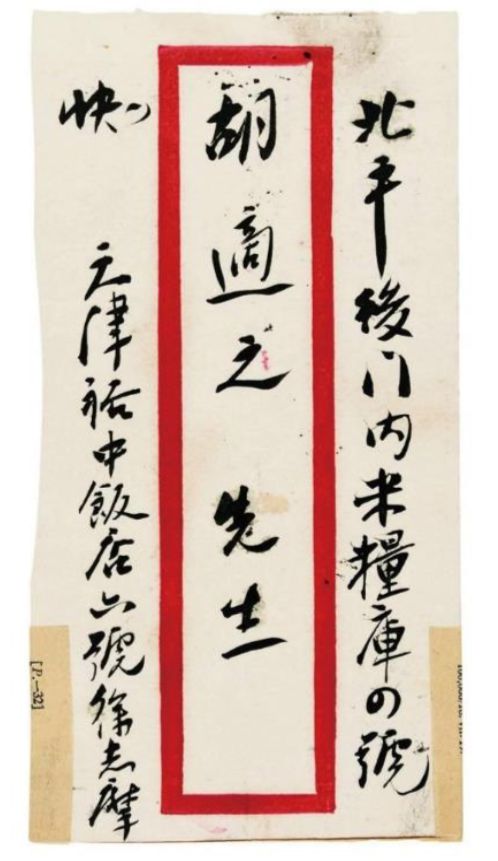 北平後门内米糧庫の號
胡適之先生
快
天津裕中飯店六號徐志摩
[P.-32]